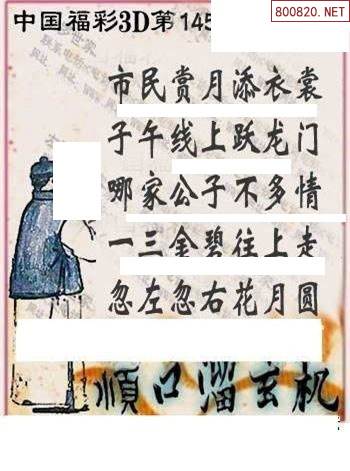 中国福彩3D第145
800820.NET
市民赏月添衣裳
子午线上跃龙门
哪家公子不多情
一三金碧往上走
忽左忽右花月圆
顺口溜玄机